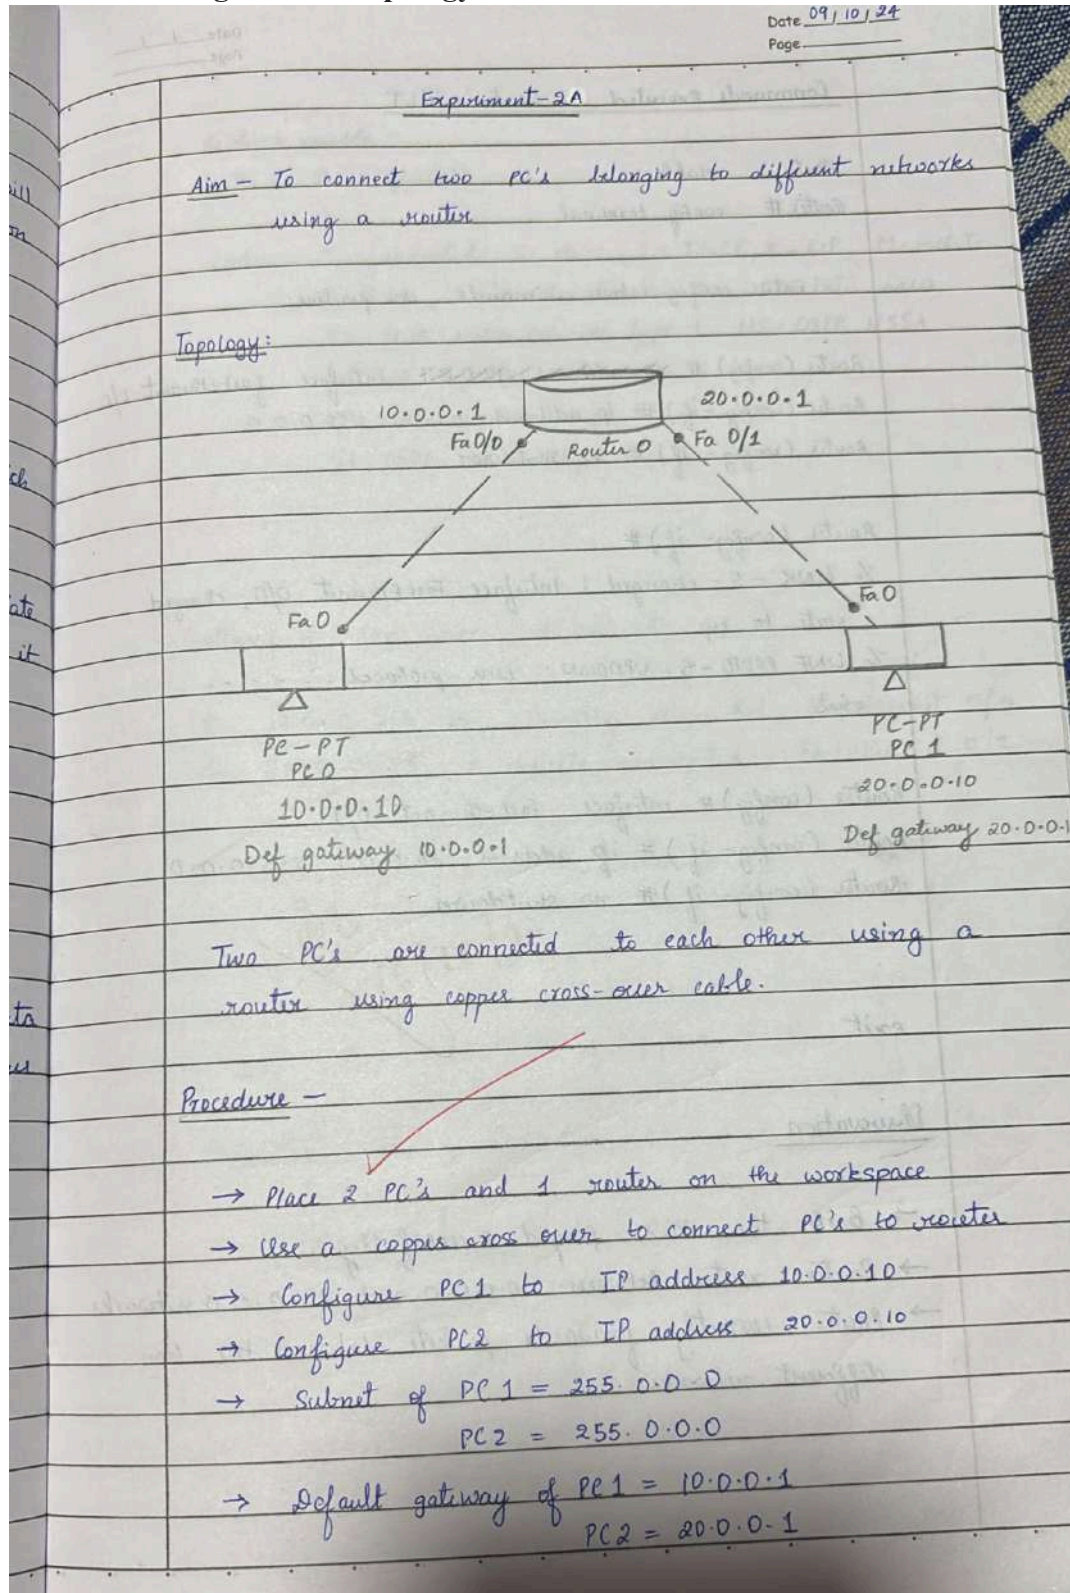 Date 09/10/24
Page
Experiment-2A
Aim - To connect two PC's belonging to different networks
using a router
Topology:
10.0.0.1
20.0.0.1
Fa0/0
Router 0
Fa 0/1
Fa0
Fa0
PC-PT
PC 0
10.0.0.10
Def gateway 10.0.0.1
PC-PT
PC 1
20.0.0.10
Def gateway 20.0.0.1
Two PC's are connected to each other using a
router using copper cross-over cable.
Procedure -
→ Place 2 PC's and 1 router on the workspace
→ Use a copper cross over to connect PC's to router
→ Configure PC1 to IP address 10.0.0.10
→ Configure PC2 to IP address 20.0.0.10
→ Subnet of PC1 = 255.0.0.0
PC2 = 255.0.0.0
→ Default gateway of PC1 = 10.0.0.1
PC2 = 20.0.0.1